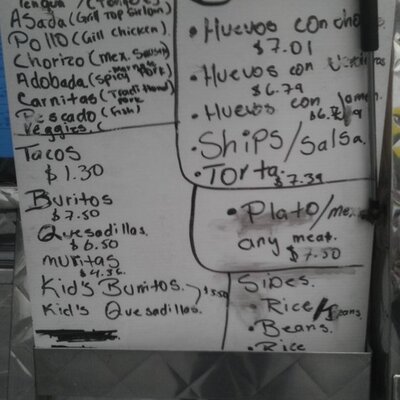 Lengua/(Tongue)
Asada (Grill Top Sirloin)
Pollo (Gill Chicken)
Chorizo (Mex. Sausage)
Adobada (Spicy Pork)
Carnitas (Traditional Pork
Pescado (Fish)
Veggies. (
Tacos
$1.30
Buritos
$7.50
Quesadillas.
$6.50
mulitas
$4.36
Kid's Burritos.
$3.50
Kid's Quesadillos.
• Huevos con cho
$7.01
• Huevos con
$6.79
• Huevos con Jamon.
• Ships/Salsa.
• Torta.
$7.39
• Plato/mex
any meat.
$7.50
Sides.
Rice/Beans.
• Beans.
• Rice